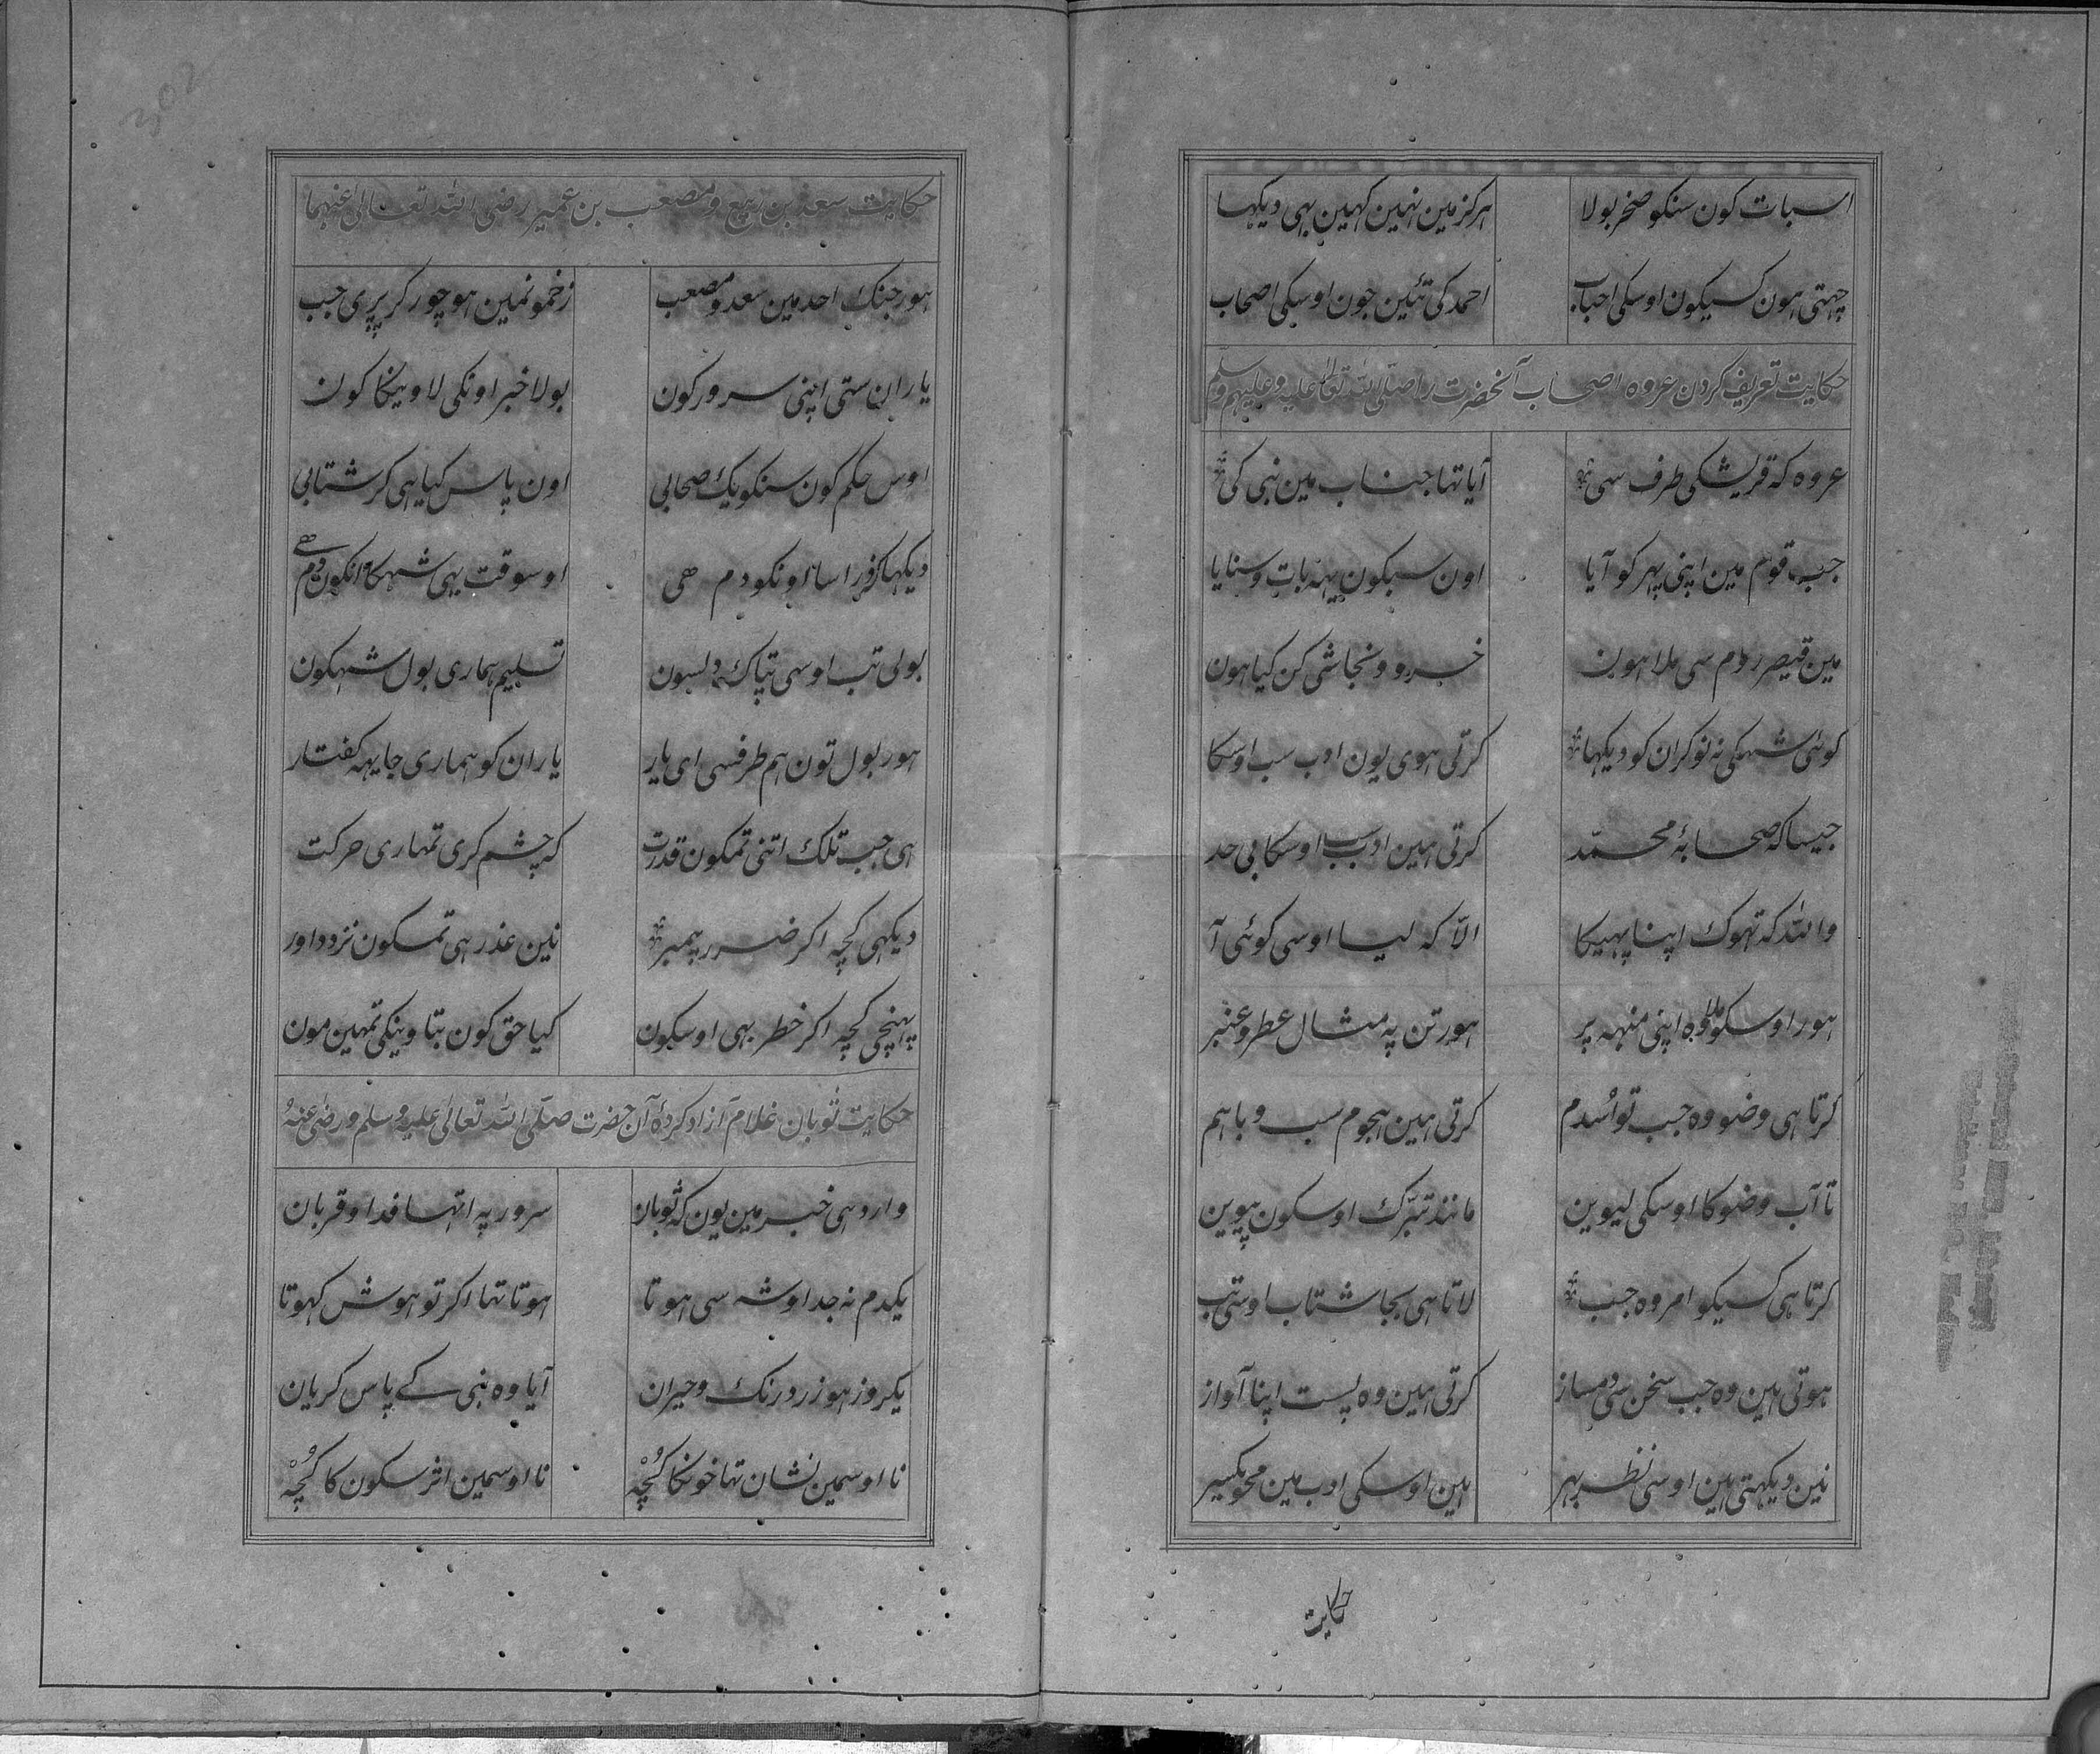 اسبات کون سنکو صخر بولا ہرکز مین نہین کہین یہی دیکہا
چہتی ہون کسیکون اوسکی احباب احمد کی تئین جون اوسکی اصحاب
حکایت تعریف کردن عروہ اصحاب آنحضرت را صلی اللہ تعالی علیہ وعلیہم وسلم
عروہ کہ قریشکی طرف سی آیا تہا جناب مین نبی کی
جب قوم مین اپنی پہر کو آیا اون سبکون یہہ بات وسنایا
مین قیصر روم سی ملا ہون خسرو ونجاشی کن کیا ہون
کوئی شہکی نہ نوکران کو دیکہا کرتی ہوی یون ادب سب اوسکا
جیسا کہ صحابۂ محمّد کرتی ہین ادب اوسکا بی حد
واللہ کہ تہوک اپنا پہیکا الّا کہ لیا اوسی کوئی آ
ہور اوسکو ملا وہ اپنی منہہ پر ہور تن پہ مثال عطر وعنبر
کرتا ہی وضو وہ جب تو اُسدم کرتی ہین ہجوم سب وباہم
تا آب وضو کا اوسکی لیوین مانند تبرّک اوسکون پیوین
کرتا ہی کسیکو امر وہ جب لاتا ہی بجا شتاب اوسی تب
ہوتی ہین وہ جب سخن سی دمساز کرتی ہین وہ پست اپنا آواز
نین دیکہتی ہین اوسی نظر بہر ہین اوسکی ادب مین محو یکسر
حکایت
حکایت سعد بن ربیع ومصعب بن عمیر رضی اللہ تعالی عنہما
ہور جنک احد مین سعد ومصعب زخمونمین ہو چور کر پڑی جب
یاران ستی اپنی سرور کون بولا خبر اونکی لاوینکا کون
اوس حکم کون سنکو یک صحابی اون پاس کیا ہی کر شتابی
دیکہا کہ ذرا سا اونکو دم ھی اوسوقت یہی شہکا انکون دم ھے
بولی تب اوسی تپاک دلسون تسلیم ہماری بول شہکون
ہور بول تون ہم طرفسی ای یار یاران کو ہماری جا یہہ کفتار
ہی جب تلک اتنی تمکون قدرت کہ چشم کری تمہاری حرکت
دیکہی کچہ اکر ضرر پیمبر نین عذر ہی تمسکون نزد داور
پہنچی کچہ اکر خطر یہی اوسکون کیا حق کون بتاوینکی تمہین مون
حکایت ثوبان غلام آزاد کردۂ آن حضرت صلی اللہ تعالی علیہ وسلم ورضی عنہ
وارد ہی خبر مین یون کہ ثوبان سرور پہ اتہا فدا وقربان
یکدم نہ جدا وشہ سی ہوتا ہوتا تہا اکر تو ہوش کہوتا
یکروز ہو زرد رنک وحیران آیا وہ نبی کے پاس کریان
نا اوسمین نشان تہا خونکا کُچہ نا اوسمین اثر سکون کا کُچہ